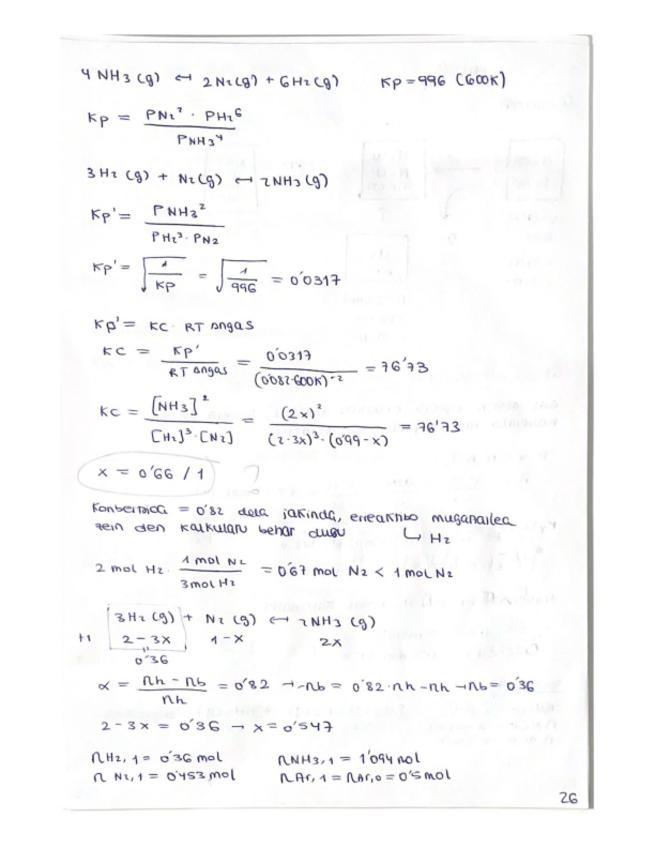 4 NH3 (g) ↔ 2N2(g) + 6H2(g) Kp = 996 (600K)
Kp = PN2² · PH2⁶ / PNH3⁴
3H2 (g) + N2(g) ↔ 2NH3(g)
Kp' = PNH3² / PH2³ · PN2
Kp' = √(1/Kp) = √(1/996) = 0'0317
Kp' = KC · RT Δngas
KC = Kp' / RT Δngas = 0'0317 / (0'082·600K)⁻² = 76'73
KC = [NH3]² / [H2]³·[N2] = (2x)² / (2-3x)³·(0'99-x) = 76'73
x = 0'66 / 1 ?
Konbertsioa = 0'82 dela jakinda, erreaktibo mugatzailea
zein den kalkulatu behar dugu ↳ H2
2 mol H2 · 1 mol N2 / 3mol H2 = 0'67 mol N2 < 1 mol N2
3H2 (g) + N2 (g) ↔ 2NH3 (g)
H1 2-3x 1-x 2x
0'36
α = nh - nb / nh = 0'82 → -nb = 0'82·nh - nh → nb = 0'36
2-3x = 0'36 → x = 0'547
nH2,1 = 0'36 mol nNH3,1 = 1'094 mol
n N2,1 = 0'453 mol nAr,1 = nAr,0 = 0'5 mol
26